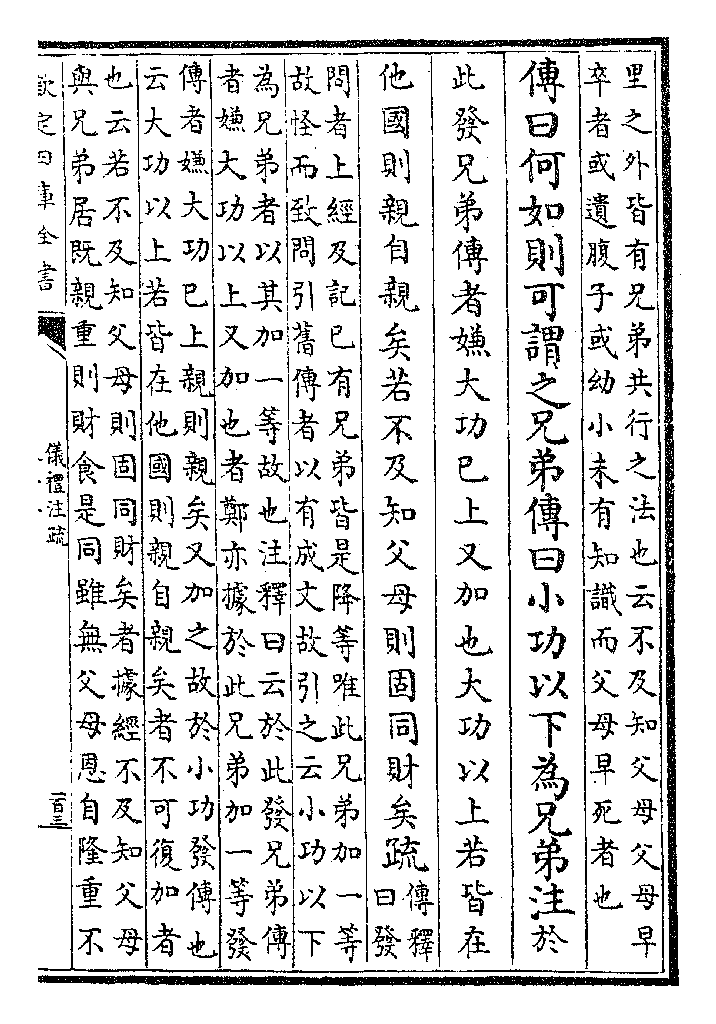 里之外皆有兄弟共行之法也云不及知父母父母早
卒者或遺腹子或幼小未有知識而父母早死者也
傳曰何如則可謂之兄弟傳曰小功以下為兄弟注於
此發兄弟傳者嫌大功已上又加也大功以上若皆在
他國則親自親矣若不及知父母則固同財矣疏傳釋
曰發
問者上經及記已有兄弟皆是降等唯此兄弟加一等
故怪而致問引舊傳者以有成文故引之云小功以下
為兄弟者以其加一等故也注釋曰云於此發兄弟傳
者嫌大功以上又加也者鄭亦據於此兄弟加一等發
傳者嫌大功已上親則親矣又加之故於小功發傳也
云大功以上若皆在他國則親自親矣者不可復加者
也云若不及知父母則固同財矣者據經不及知父母
與兄弟居既親重則財食是同雖無父母恩自隆重不
欽定四庫全書
儀禮注疏
一百三